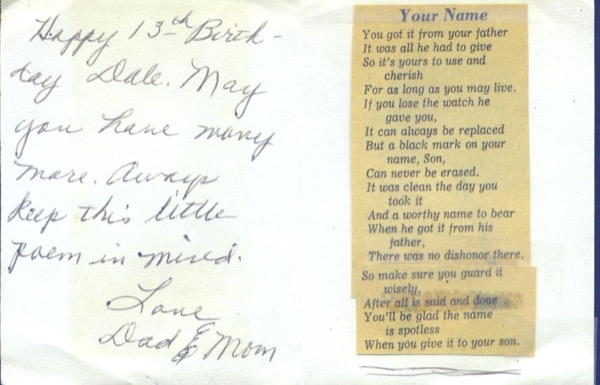 Happy 13th Birth-
day Dale. May
you have many
more. Always
keep this little
poem in mind.
Love
Dad & Mom
Your Name
You got it from your father
It was all he had to give
So it's yours to use and
cherish
For as long as you may live.
If you lose the watch he
gave you,
It can always be replaced
But a black mark on your
name, Son,
Can never be erased.
It was clean the day you
took it
And a worthy name to bear
When he got it from his
father,
There was no dishonor there.
So make sure you guard it
wisely,
After all is said and done
You'll be glad the name
is spotless
When you give it to your son.